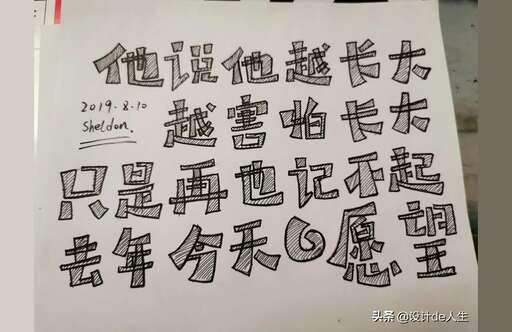 他说他越长大
2019.8.10
越害怕长大
Sheldon.
只是再也记不起
去年今天の愿望
头条 @设计de人生